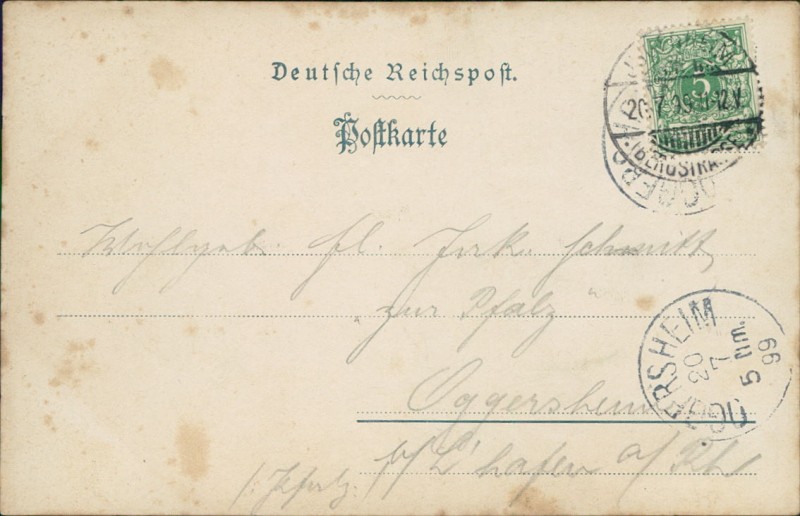 Deutsche Reichspost.
Postkarte
5
20 7 99 11-12 V
(BERGSTRASSE)
Wohlgeb. Frl. Schmitt
"zur Pfalz"
OGGERSHEIM
20
7
5 Nm.
99
Oggersheim
b/L'hafen a/Rh